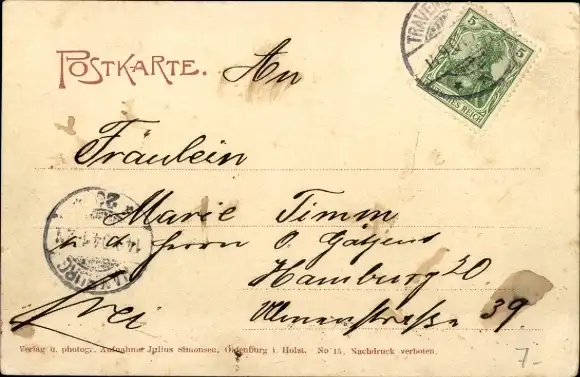 POSTKARTE.
An
TRAVEN
5 5
DEUTSCHES REICH
Fräulein
Marie Timm
p. d. Herrn O.
Hamburg 20.
HAMBURG
frei
Ulmenstraße 39.
Verlag u. photogr. Aufnahme Julius Simonsen, Oldenburg i. Holst. No 15. Nachdruck verboten.
7-